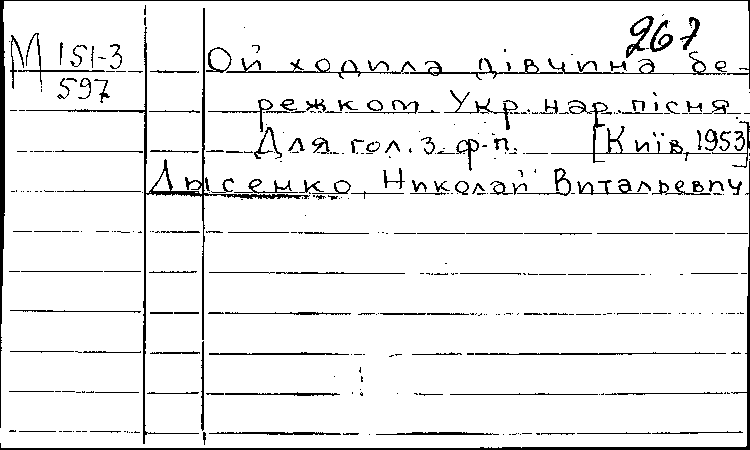 267
М 151-3
597
Ой ходила дівчина бе-
режком. Укр. нар. пісня
Для гол. з ф-п. [Київ, 1953]
Лысенко, Николай Витальевич